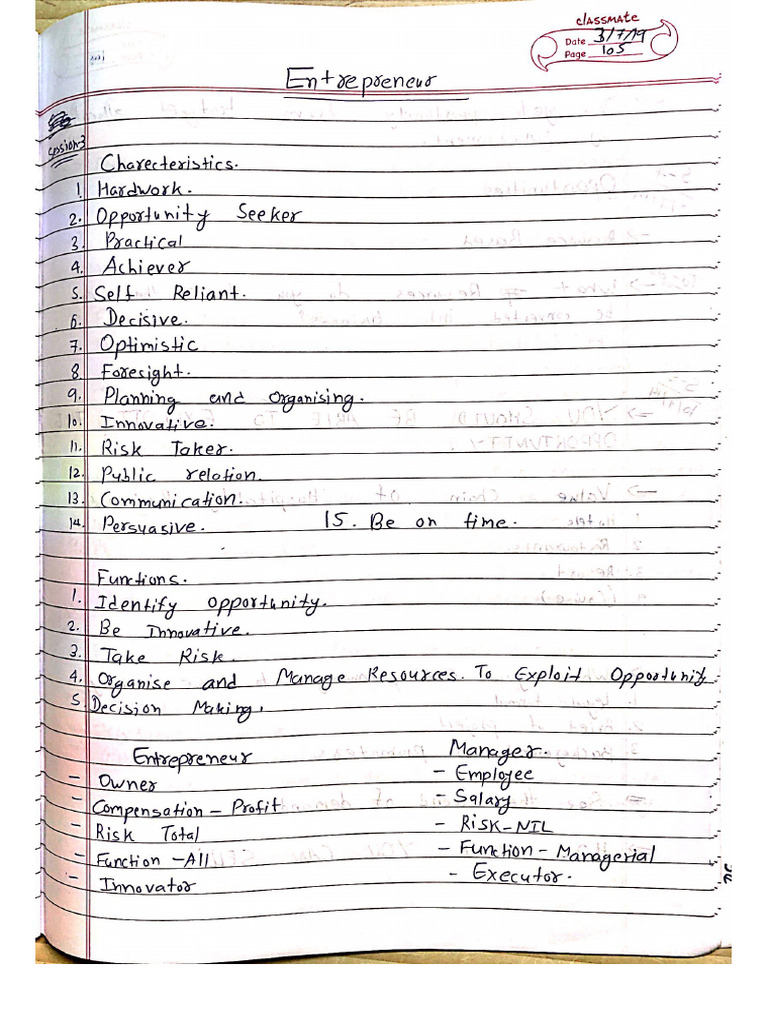 classmate
Date 3/7/19
Page 105
Entrepreneur
Session-3
Charecteristics.
1. Hardwork.
2. Opportunity Seeker
3. Practical
4. Achiever
5. Self Reliant.
6. Decisive.
7. Optimistic
8. Foresight.
9. Planning and Organising.
10. Innovative.
11. Risk Taker.
12. Public relation.
13. Communication.
14. Persuasive. 15. Be on time.
Functions.
1. Identify opportunity.
2. Be Innovative.
3. Take Risk.
4. Organise and Manage Resources. To Exploit Opportunity
5. Decision Making.
Entrepreneur Manager.
- Owner - Employee
- Compensation - Profit - Salary
- Risk Total - Risk - NIL
- Function - All - Function - Managerial
- Innovator - Executor.